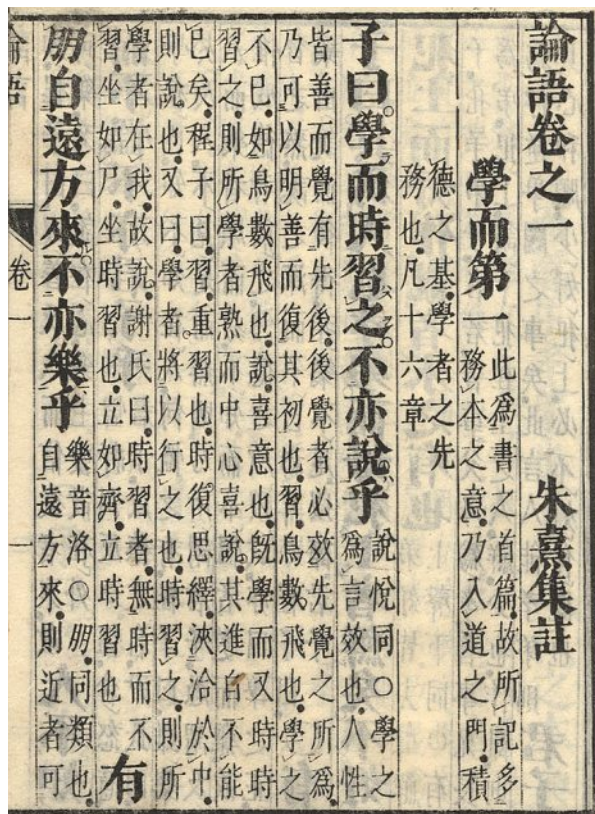 論語卷之一　朱熹集註
學而第一
此爲書之首篇故所記多
務本之意乃入道之門積
德之基學者之先
務也凡十六章
子曰學而時習之不亦說乎
說悅同○學之
爲言效也人性
皆善而覺有先後後覺者必效先覺之所爲
乃可以明善而復其初也習鳥數飛也學之
不已如鳥數飛也說喜意也旣學而又時時
習之則所學者熟而中心喜說其進自不能
已矣程子曰習重習也時復思繹浹洽於中
則說也又曰學者將以行之也時習之則所
學者在我故說謝氏曰時習者無時而不
習坐如尸坐時習也立如齊立時習也
有
朋自遠方來不亦樂乎
樂音洛○朋同類也
自遠方來則近者可
論語　卷一　一